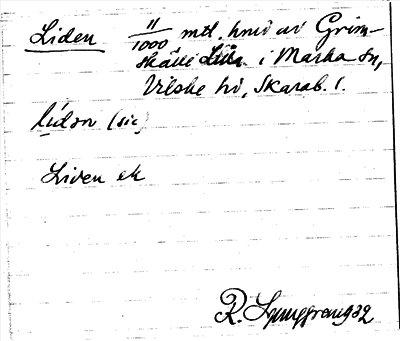 Liden 11/1000 mtl, hmd av Grim-
skälli Lilla. i Marka sn,
Vilske hd, Skarab. l.
lídən (sic)
Liden ek
R. Ljunggren 1932